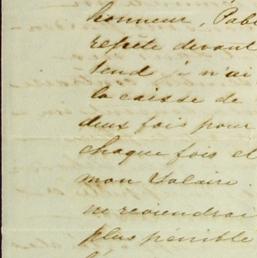 honneur, Pab
repète devant
tend j n'ai
la caisse de
deux fois pour
chaque fois et
mon salaire.
ne reviendrai
plus pénible